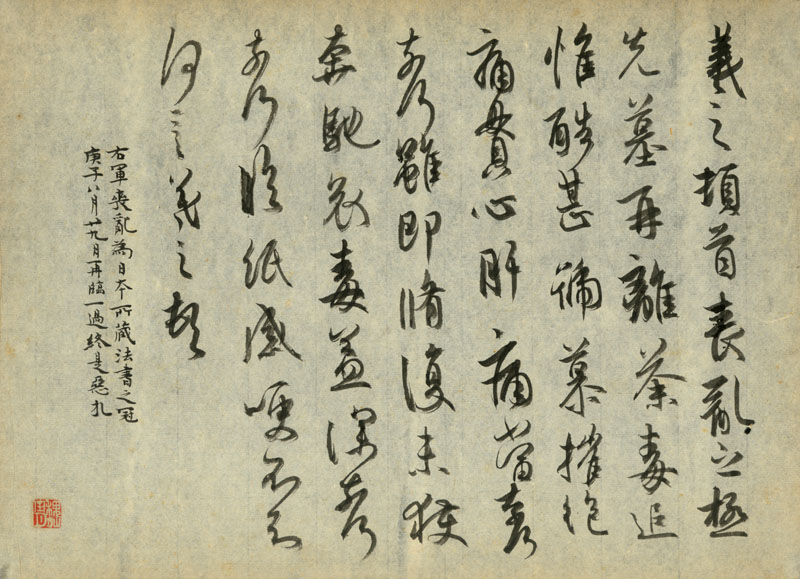 羲之頓首喪亂之極
先墓再離荼毒追
惟酷甚號慕摧絕
痛貫心肝痛當奈
奈何雖即脩復未獲
奔馳哀毒益深奈何
奈何臨紙感哽不知
何言羲之頓
右軍喪亂為日本所藏法書之冠
庚子八月廿九日再臨一過終是惡札